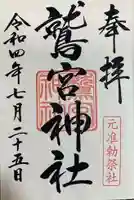 奉拝
元准勅祭社
鷲宮神社
令和四年七月二十五日